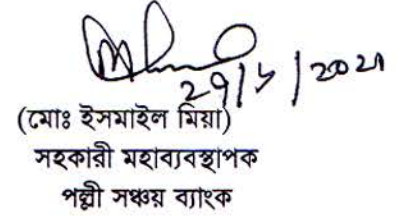 (মোঃ ইসমাইল মিয়া)
সহকারী মহাব্যবস্থাপক
পল্লী সঞ্চয় ব্যাংক